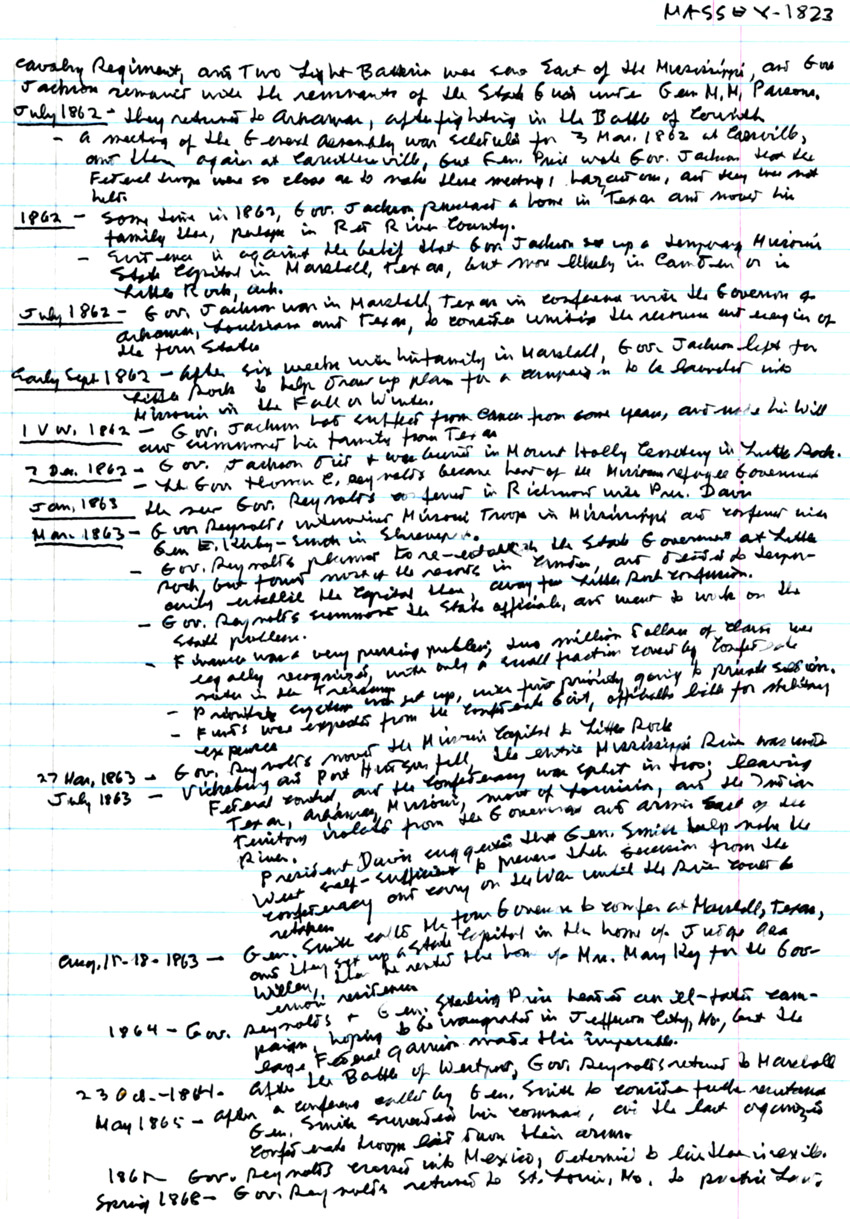 MASSEY-1823
Cavalry Regiment, and Two Light Batteries was sent East of the Mississippi, and Gov
Jackson remained with the remnants of the State Guard under Gen M.M. Parsons.
July 1862 - they returned to Arkansas, after fighting in the Battle of Corinth
- A meeting of the General Assembly was scheduled for 3 Mar. 1862 at Cassville,
and then again at Caruthersville, but Gen. Price wrote Gov. Jackson that the
Federal troops were so close as to make these meetings hazardous, and they was not
held.
1862 - Some time in 1862, Gov. Jackson purchased a home in Texas and moved his
family there, perhaps in Red River County.
- Evidence is against the belief that Gov Jackson set up a temporary Missouri
State Capitol in Marshall, Texas, but more likely in Camden or in
Little Rock, Ark.
July 1862 - Gov. Jackson was in Marshall, Texas in conference with the Governor of
Arkansas, Louisiana and Texas, to consider uniting the resources and energies of
the four States
Early Sept 1862 - After six weeks with his family in Marshall, Gov. Jackson left for
Little Rock to help draw up plans for a campaign to be launched into
Missouri in the Fall or Winter.
1 Nov. 1862 - Gov. Jackson had suffered from Cancer from some years, and made his Will
and summoned his family from Texas
7 Dec. 1862 - Gov. Jackson died & was buried in Mount Holly Cemetery in Little Rock.
- Lt. Gov. Thomas C. Reynolds became head of the Missouri refugee Government
Jan, 1863 the new Gov. Reynolds conferred in Richmond with Pres. Davis
Mar. 1863 - Gov Reynolds interviewed Missouri Troops in Mississippi and conferred with
Gen E. Kirby-Smith in Shreveport.
- Gov. Reynolds planned to re-establish the State Government at Little
Rock, but found most of the records in Camden, and decided to tempor-
arily establish the Capital there, away from Little Rock confusion.
- Gov. Reynolds summoned the State officials, and went to work on the
State problems.
- Finance was a very pressing problem, two million dollars of claims was
legally recognized, with only a small fraction covered by Confederate
notes in the Treasury
- Priorities system was set up, with first priority going to private soldiers.
- Funds was expected from the Confederate Govt, officially billed for military
expenses
27 Mar, 1863 - Gov. Reynolds moved the Missouri Capitol to Little Rock
July 1863 - Vicksburg and Port Hudson fell, the entire Mississippi River was under
Federal control and the Confederacy was split in two; leaving
Texas, Arkansas, Missouri, most of Louisiana, and the Indian
Territory isolated from the Government and armies East of the
River.
President Davis suggested that Gen. Smith help make the
West self-sufficient to prevent their secession from the
Confederacy and carry on the War until the River could be
retaken
Aug, 15-18-1863 - Gen. Smith called the four Governors to confer at Marshall, Texas,
and they set up a State Capitol in the home of Judge Asa
Willey, the he rented the home of Mrs. Mary Key for the Gov-
ernors residence
1864 - Gov. Reynolds & Gen. Sterling Price headed an ill-fated cam-
paign, hoping to be inaugurated in Jefferson City, Mo, but the
large Federal Garrison made this impossible.
23 Oct.-1864. After the Battle of Westport, Gov. Reynolds returned to Marshall
May 1865 - After a conference called by Gen. Smith to consider further resistance
Gen. Smith surrendered his command, as the last organized
Confederate troops laid down their arms
1865 - Gov. Reynolds crossed into Mexico, determined to live there in exile.
Spring 1868 - Gov. Reynolds returned to St. Louis, Mo. to practice Law.